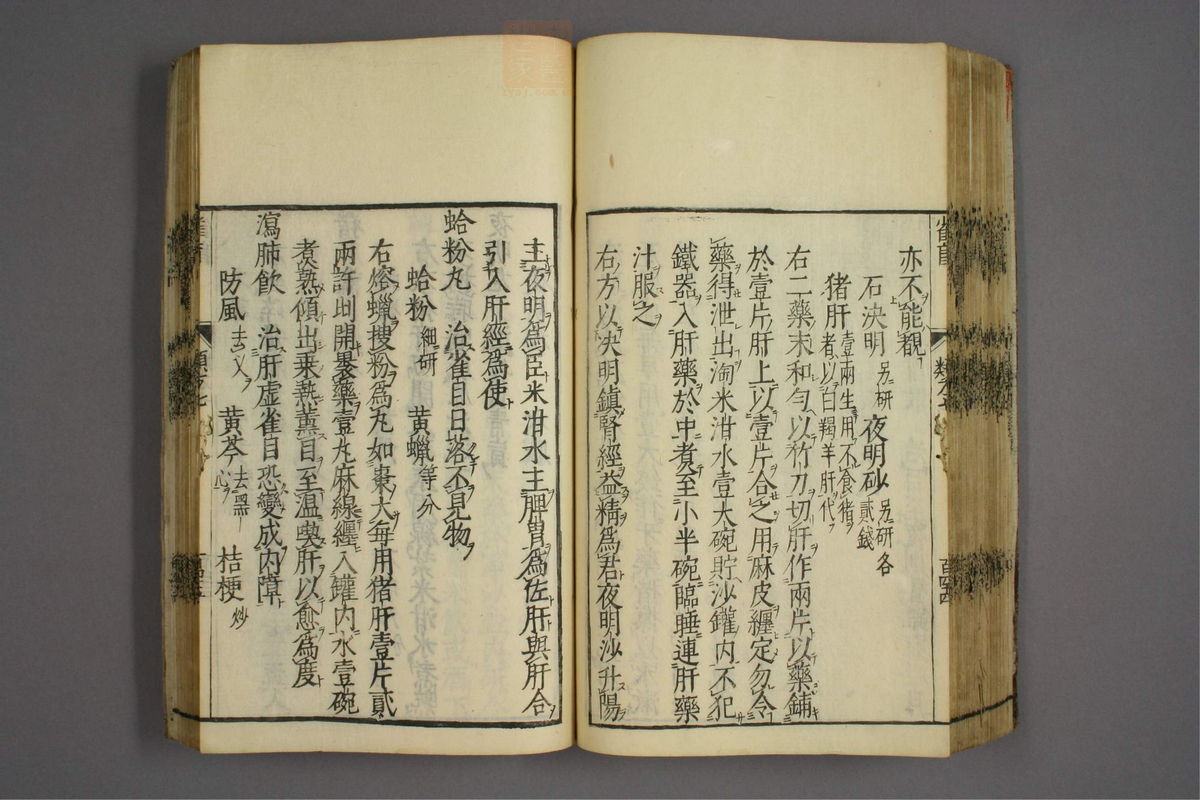 亦不能覩
石決明另研 夜明砂另研各貳錢
猪肝壹兩生用不食猪者以白羯羊肝代
右二藥末和勻以竹刀切肝作兩片以藥鋪
於壹片肝上以壹片合之用麻皮纏定勿令
藥得泄出淘米泔水壹大碗貯沙罐內不犯
鐵器入肝藥於中煮至小半碗臨睡連肝藥
汁服之
右方以決明鎮腎經益精為君夜明沙升陽
主夜明為臣米泔水主脾胃為佐肝與肝合
引入肝經為使
蛤粉丸 治雀目日落不見物
蛤粉細研 黄蠟等分
右熔蠟搜粉為丸如棗大每用猪肝壹片貳
兩許 開裹藥壹丸麻線纏入罐内水壹碗
煮熟傾出乘熱薰目至温喫肝以愈為度
瀉肺飲 治肝虚雀目恐變成内障
防風去乂 黄芩去黑心 桔梗炒